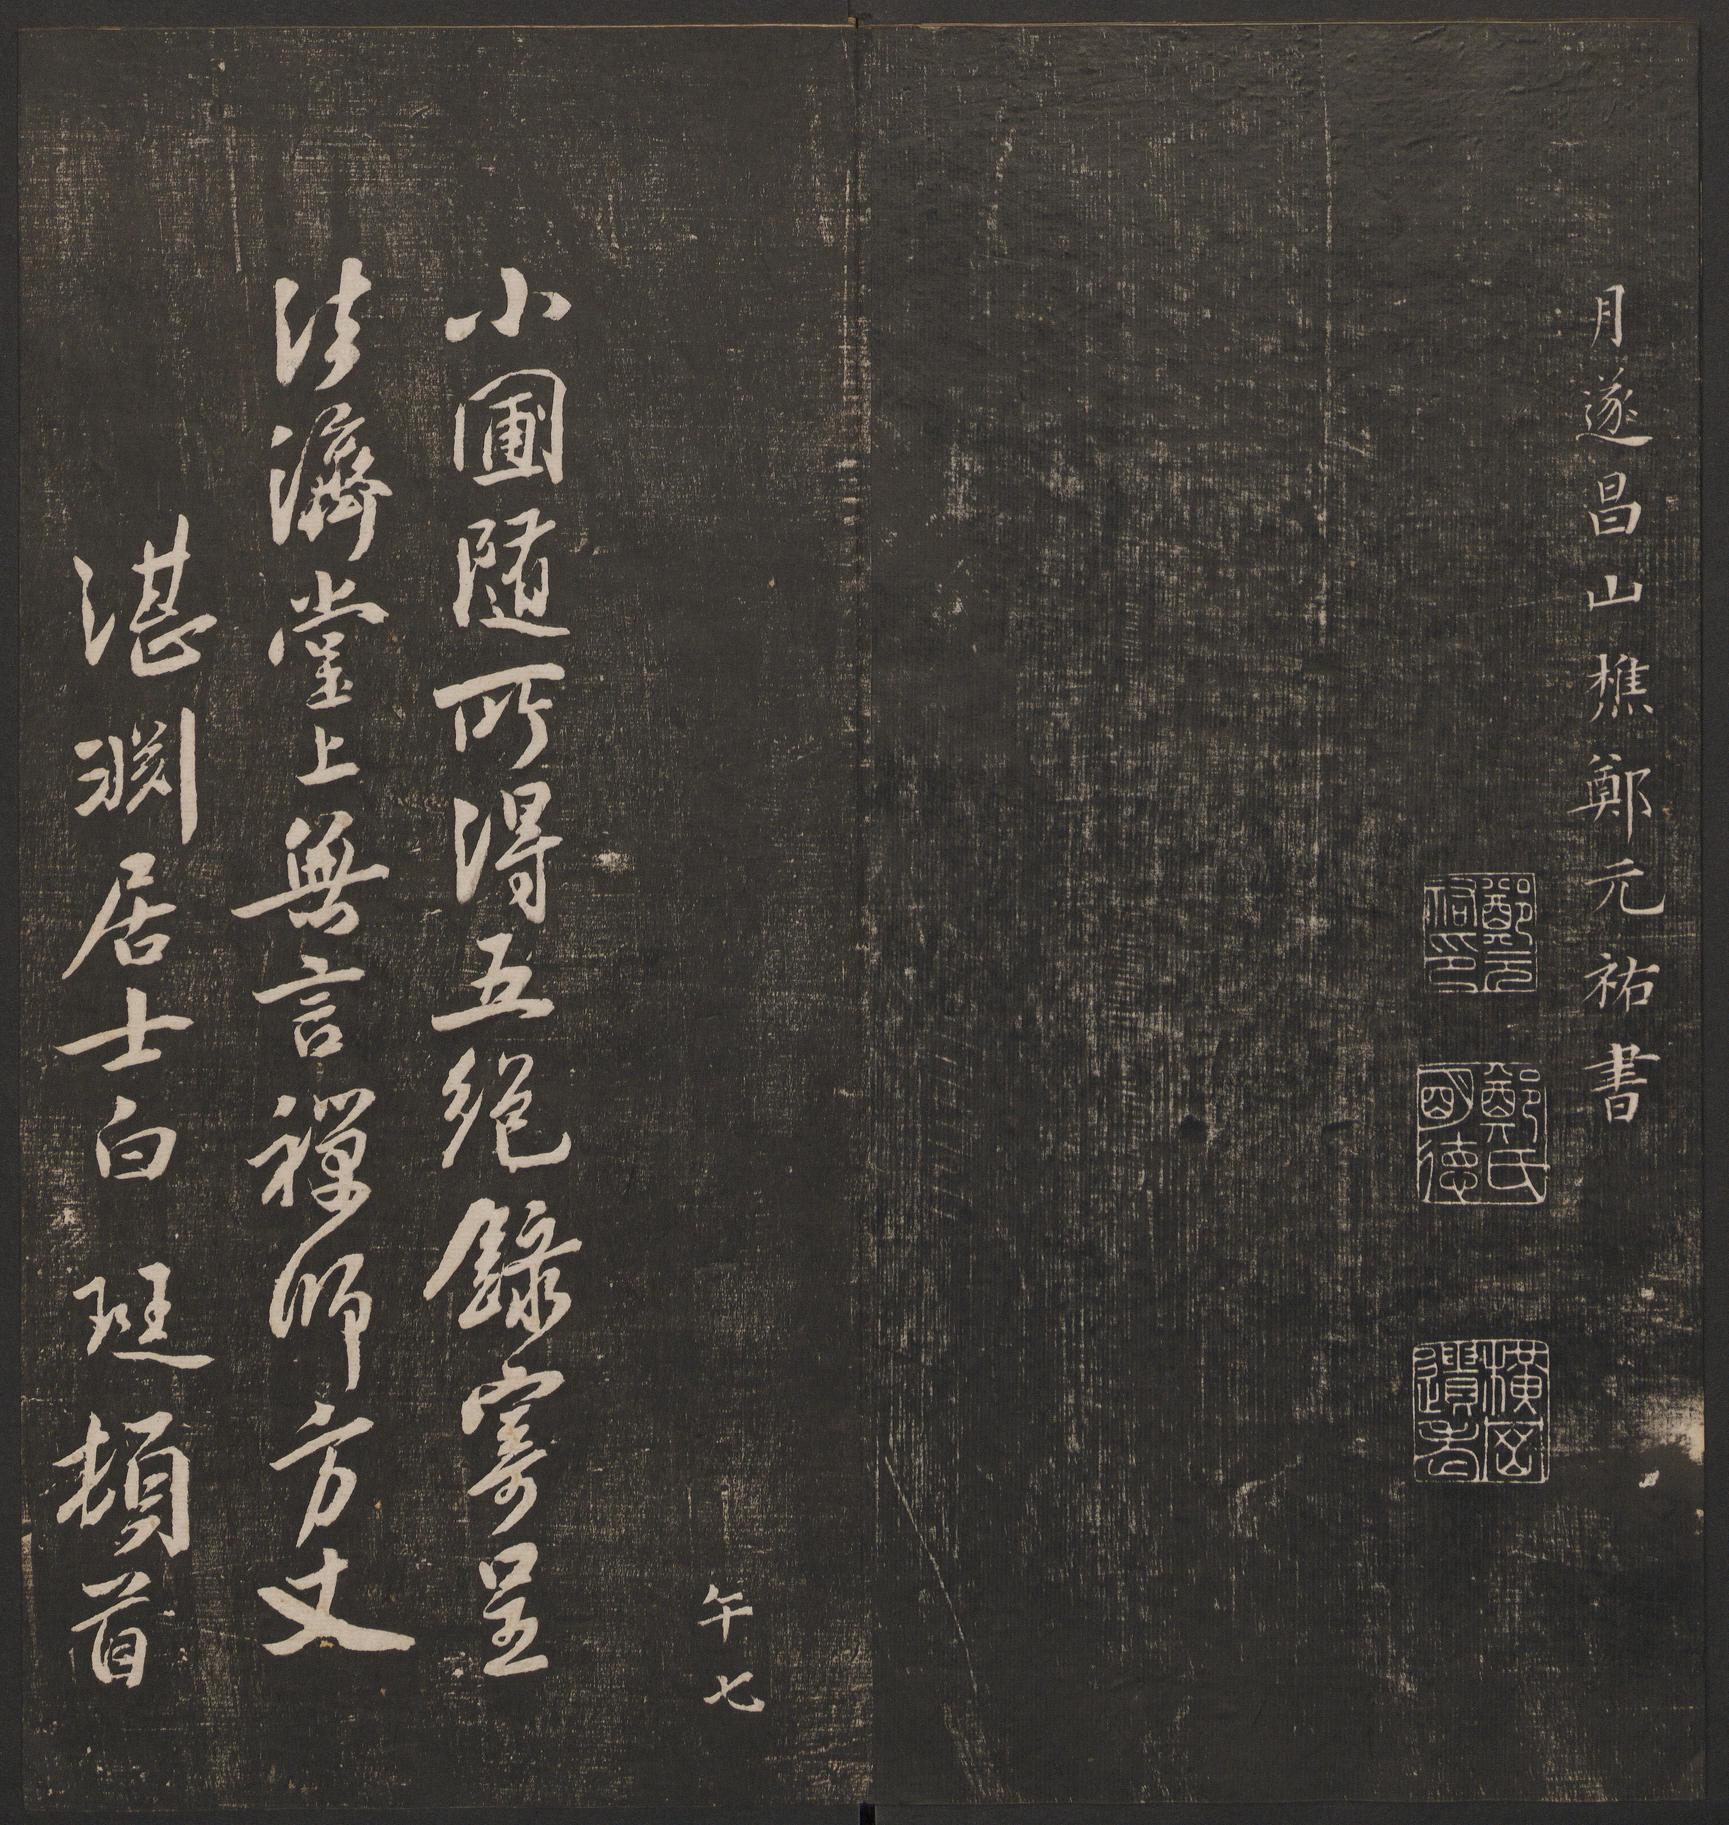 月遂昌山樵鄭元祐書
鄭元祐印
鄭氏明德
午七
小圃隨所得五絶錄寄呈
法濟堂上無言禪師方丈
湛淵居士白珽頓首